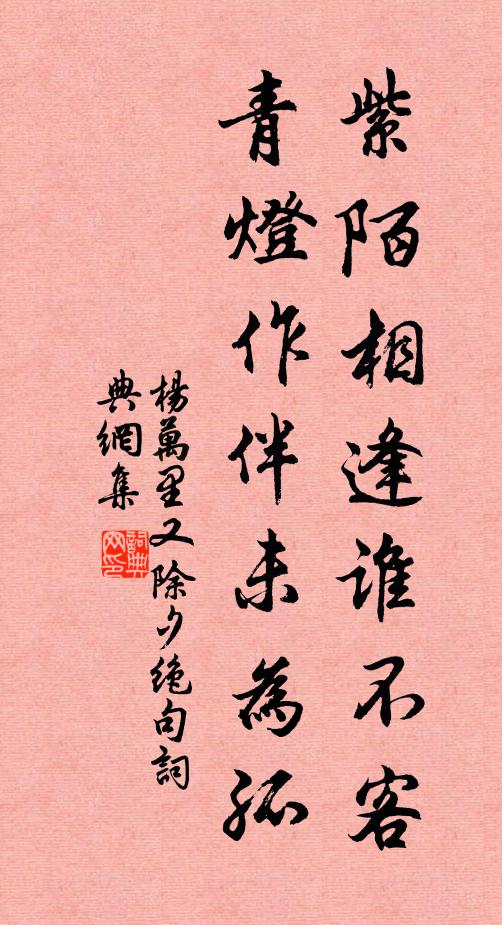 紫陌相逢誰不客
青燈作伴未為孤
楊萬里又除夕絶句詞
典網集
詞典
网印